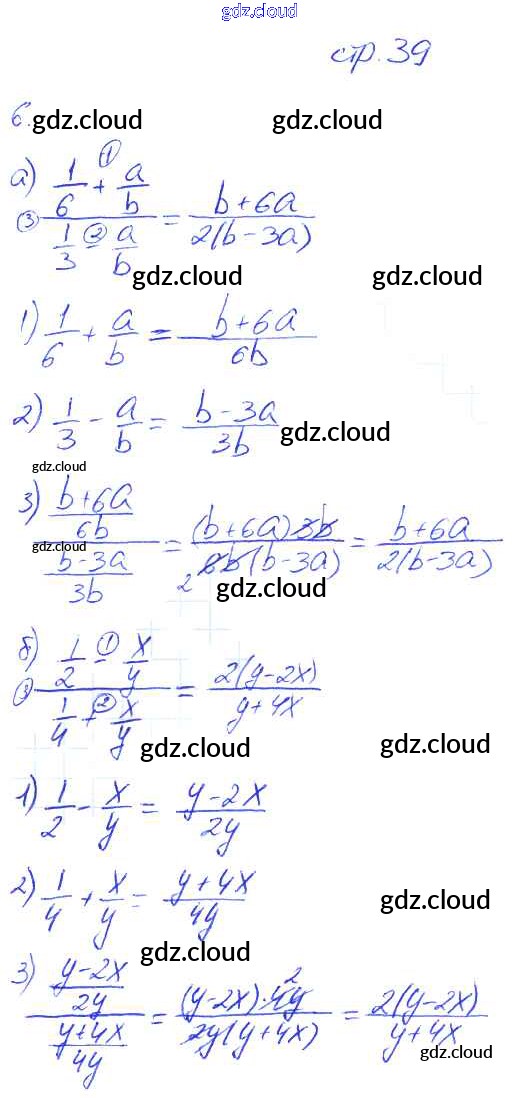 gdz.cloud
стр. 39
6. gdz.cloud gdz.cloud
а) (1/6 + ① a/b) / (1/3 - ② a/b) ③ = (b+6a) / (2(b-3a))
gdz.cloud gdz.cloud
1) 1/6 + a/b = (b+6a) / 6b
2) 1/3 - a/b = (b-3a) / 3b gdz.cloud
gdz.cloud
3) ((b+6a) / 6b) / ((b-3a) / 3b) = ((b+6a) 3b) / (6b(b-3a)) 2 = (b+6a) / (2(b-3a))
gdz.cloud
gdz.cloud
б) (1/2 - ① x/y) / (1/4 + ② x/y) ③ = 2(y-2x) / (y+4x)
gdz.cloud gdz.cloud
1) 1/2 - x/y = (y-2x) / 2y
2) 1/4 + x/y = (y+4x) / 4y gdz.cloud
gdz.cloud
3) ((y-2x) / 2y) / ((y+4x) / 4y) = ((y-2x)·4y 2) / (2y(y+4x)) = 2(y-2x) / (y+4x)
gdz.cloud